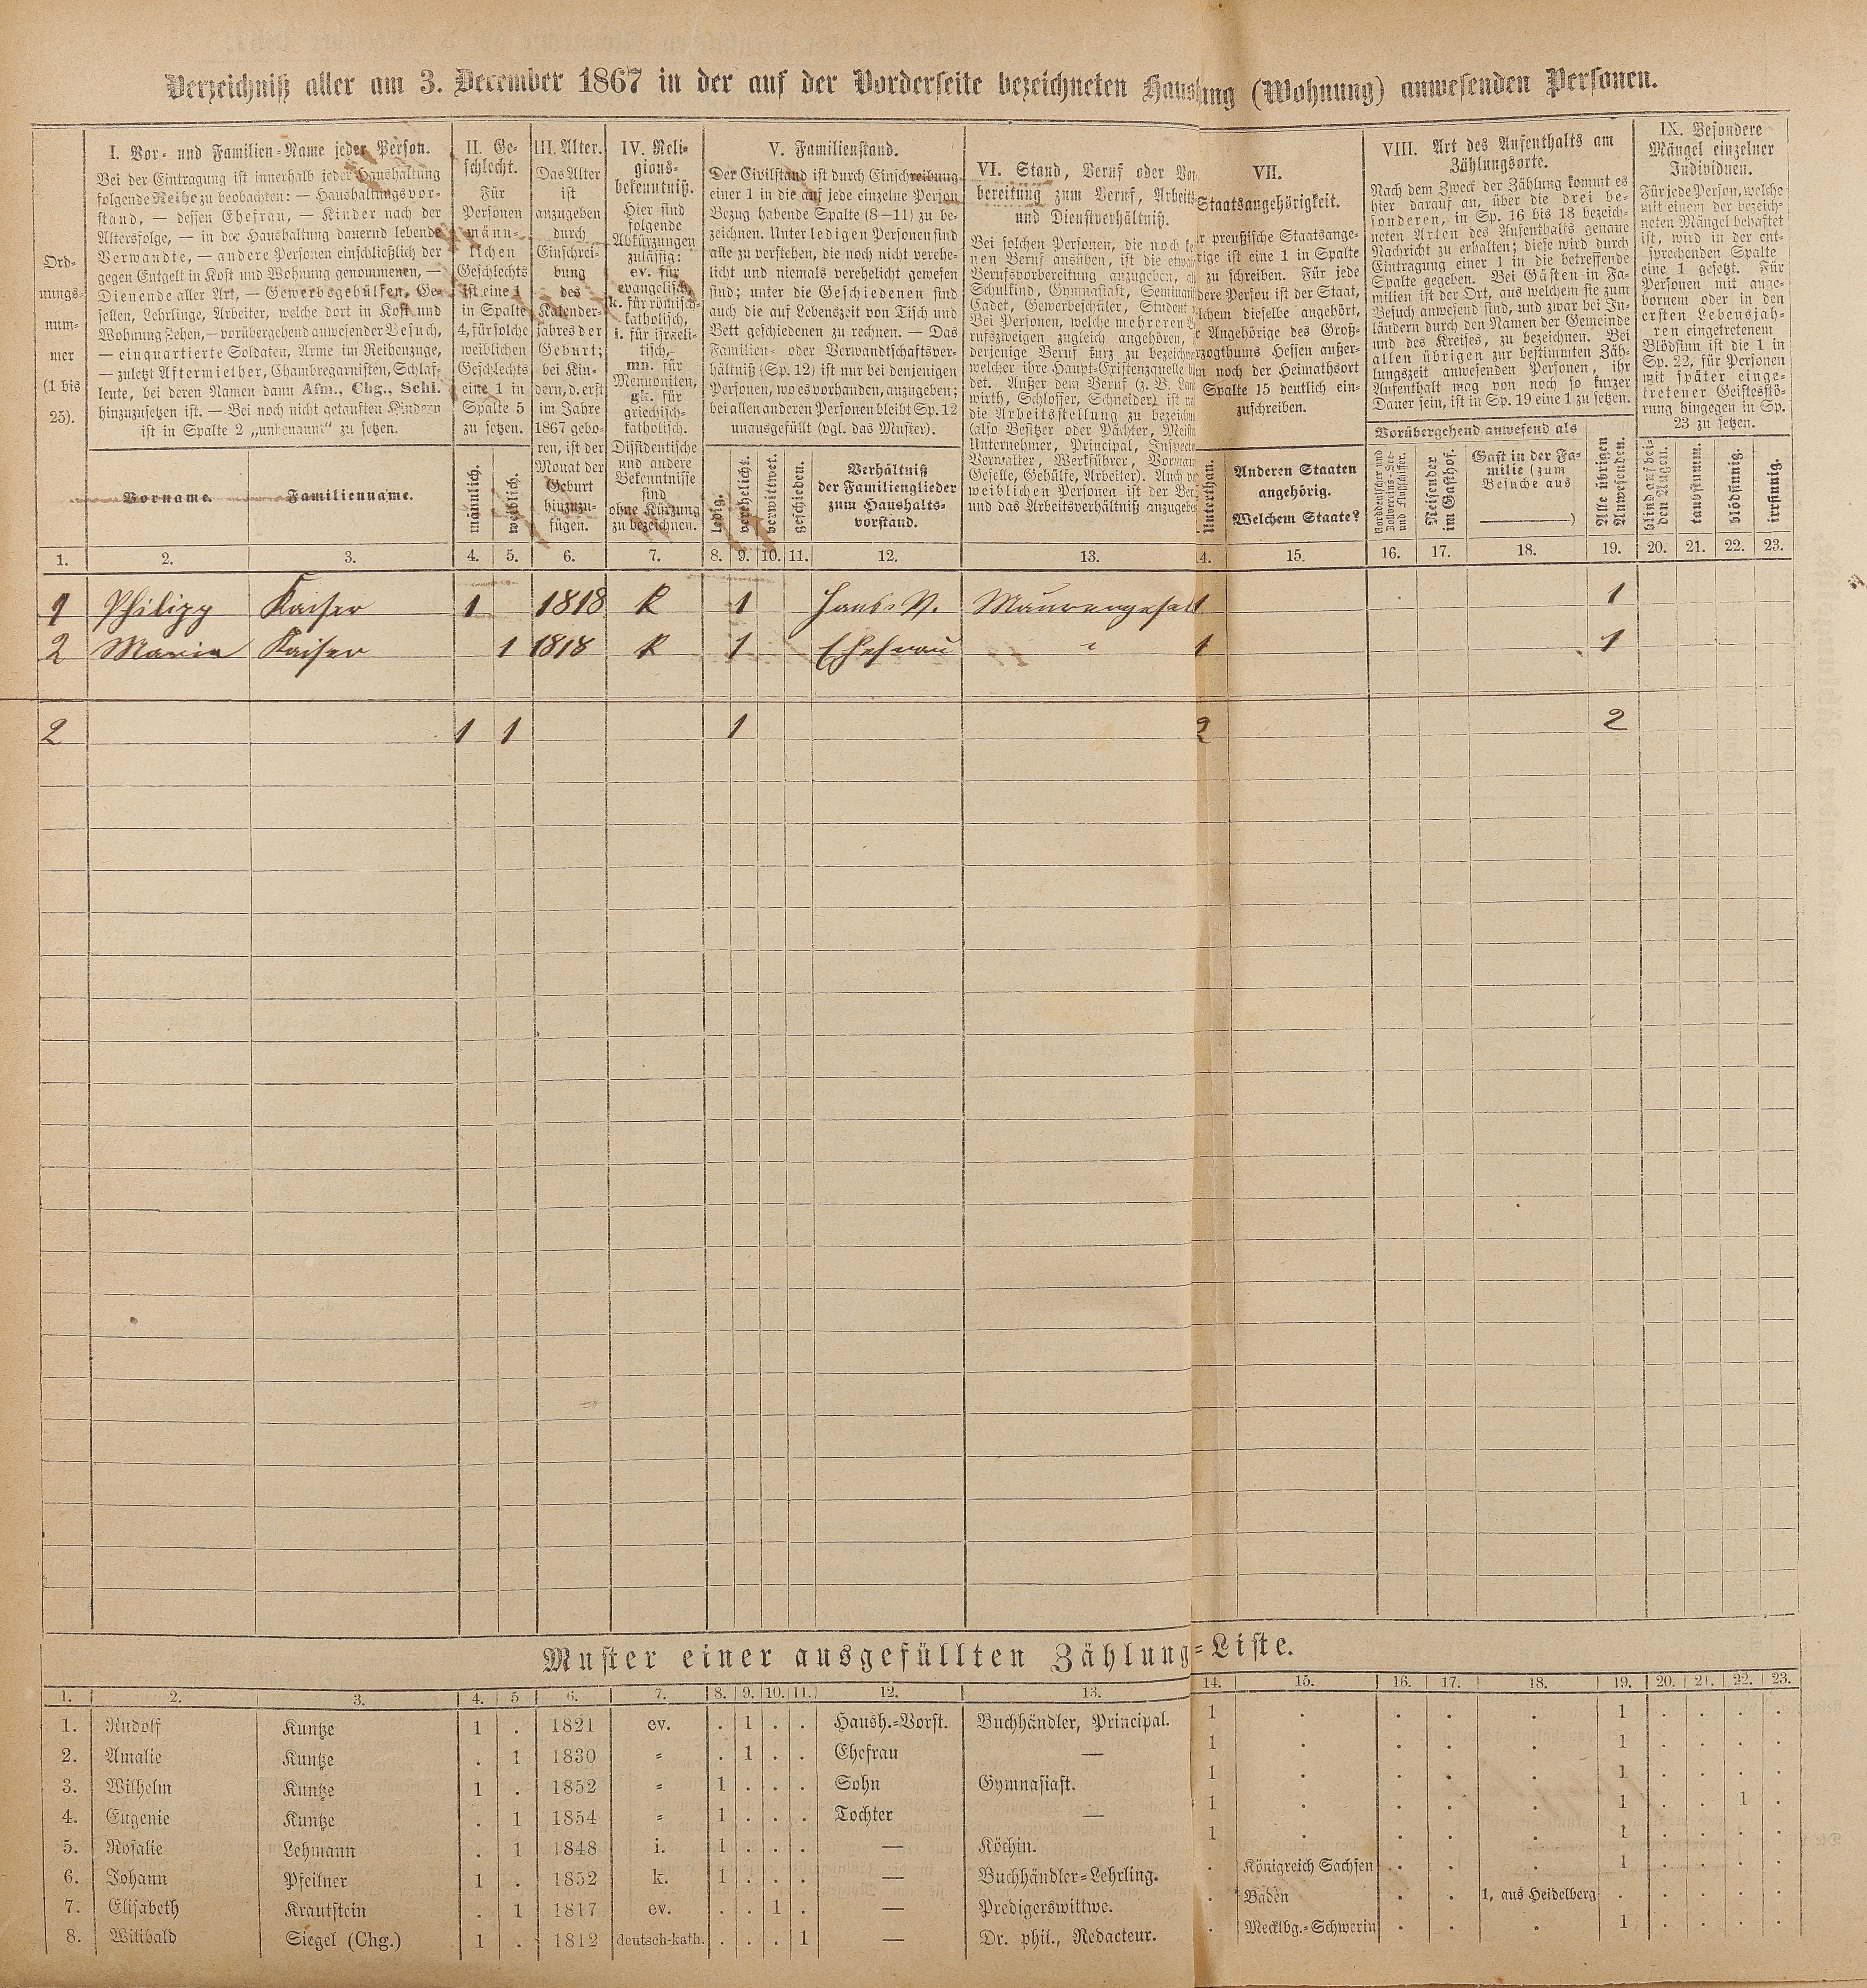 Verzeichniß aller am 3. December 1867 in der auf der Vorderseite bezeichneten Haushaltung (Wohnung) anwesenden Personen.
Ord-
nungs-
num-
mer
(1 bis
25).
I. Vor- und Familien-Name jeder Person.
Bei der Eintragung ist innerhalb jeder Haushaltung
folgende Reihe zu beobachten: — Haushaltungsvor-
stand, — dessen Ehefrau, — Kinder nach der
Altersfolge, — in der Haushaltung dauernd lebende
Verwandte, — andere Personen einschließlich der
gegen Entgelt in Kost und Wohnung genommenen, —
Dienende aller Art, — Gewerbsgehülfen, Ge-
sellen, Lehrlinge, Arbeiter, welche dort in Kost und
Wohnung stehen, — vorübergehend anwesender Besuch,
— einquartierte Soldaten, Arme im Reihenzuge,
— zuletzt Aftermiether, Chambregarnisten, Schlaf-
leute, bei deren Namen dann Afm., Chg., Schl.
hinzuzusetzen ist. — Bei noch nicht getauften Kindern
ist in Spalte 2 „unbenannt“ zu setzen.
Vorname.
Familienname.
II. Ge-
schlecht.
Für
Personen
männ-
lichen
Geschlechts
ist eine 1
in Spalte
4, für solche
weiblichen
Geschlechts
eine 1 in
Spalte 5
zu setzen.
männlich.
weiblich.
III. Alter.
Das Alter
ist
anzugeben
durch
Einschrei-
bung
des
Kalender-
jahres der
Geburt;
bei Kin-
dern, d. erst
im Jahre
1867 gebo-
ren, ist der
Monat der
Geburt
hinzuzu-
fügen.
IV. Reli-
gions-
bekenntniß.
Hier sind
folgende
Abkürzungen
zulässig:
ev. für
evangelisch,
k. für römisch-
katholisch,
i. für israeli-
tisch,
mn. für
Mennoniten,
gk. für
griechisch-
katholisch.
Dissidentische
und andere
Bekenntnisse
sind
ohne Kürzung
zu bezeichnen.
V. Familienstand.
Der Civilstand ist durch Einschreibung
einer 1 in die auf jede einzelne Person
Bezug habende Spalte (8—11) zu be-
zeichnen. Unter ledigen Personen sind
alle zu verstehen, die noch nicht verehe-
licht und niemals verehelicht gewesen
sind; unter die Geschiedenen sind
auch die auf Lebenszeit von Tisch und
Bett geschiedenen zu rechnen. — Das
Familien- oder Verwandtschaftsver-
hältniß (Sp. 12) ist nur bei denjenigen
Personen, wo es vorhanden, anzugeben;
bei allen anderen Personen bleibt Sp. 12
unausgefüllt (vgl. das Muster).
ledig.
verehelicht.
verwittwet.
geschieden.
Verhältniß
der Familienglieder
zum Haushalts-
vorstand.
VI. Stand, Beruf oder Vor
bereitung zum Beruf, Arbeits
und Dienstverhältniß.
Bei solchen Personen, die noch
nen Beruf ausüben, ist die
Berufsvorbereitung anzugeben,
Schulkind, Gymnasiast,
Cadet, Gewerbeschüler, Student
Bei Personen, welche mehreren
rufszweigen zugleich angehören,
derjenige Beruf kurz zu
welcher ihre Haupt-Existenzquelle
det. Außer dem Beruf (z. B.
wirth, Schlosser, Schneider) ist
die Arbeitsstellung zu
(also Besitzer oder Pächter,
Unternehmer, Principal,
Verwalter, Werkführer,
Geselle, Gehülfe, Arbeiter). Auch
weiblichen Personen ist der
und das Arbeitsverhältniß
VII.
Staatsangehörigkeit.
preußische Staatsange-
rige ist eine 1 in Spalte
zu schreiben. Für jede
dere Person ist der Staat,
lchem dieselbe angehört,
Angehörige des Groß-
rzogthums Hessen außer-
noch der Heimathsort
Spalte 15 deutlich ein-
zuschreiben.
Unterthan.
Anderen Staaten
angehörig.
Welchem Staate?
VIII. Art des Aufenthalts am
Zählungsorte.
Nach dem Zweck der Zählung kommt es
hier darauf an, über die drei be-
sonderen, in Sp. 16 bis 18 bezeich-
neten Arten des Aufenthalts genaue
Nachricht zu erhalten; diese wird durch
Eintragung einer 1 in die betreffende
Spalte gegeben. Bei Gästen in Fa-
milien ist der Ort, aus welchem sie zum
Besuch anwesend sind, und zwar bei In-
ländern durch den Namen der Gemeinde
und des Kreises, zu bezeichnen. Bei
allen übrigen zur bestimmten Zäh-
lungszeit anwesenden Personen, ihr
Aufenthalt mag von noch so kurzer
Dauer sein, ist in Sp. 19 eine 1 zu setzen.
Vorübergehend anwesend als
Norddeutscher und
Zollvereins-See-
und Flußschiffer.
Reisender
im Gasthof.
Gast in der Fa-
milie (zum
Besuche aus
)
Alle übrigen
Anwesenden.
IX. Besondere
Mängel einzelner
Individuen.
Für jede Person, welche
mit einem der bezeich-
neten Mängel behaftet
ist, wird in der ent-
sprechenden Spalte
eine 1 gesetzt. Für
Personen mit ange-
bornem oder in den
ersten Lebensjah-
ren eingetretenem
Blödsinn ist die 1 in
Sp. 22, für Personen
mit später einge-
tretener Geistesstö-
rung hingegen in Sp.
23 zu setzen.
blind auf bei-
den Augen.
taubstumm.
blödsinnig.
irrsinnig.
1. 2. 3. 4. 5. 6. 7. 8. 9. 10. 11. 12. 13. 4. 15. 16. 17. 18. 19. 20. 21. 22. 23.
1 Philipp Kaiser 1 1818 K 1 Haus-V. Maurergesell 1 1
2 Maria Kaiser 1 1818 K 1 Ehefrau " 1 1
2 1 1 1 2 2
Muster einer ausgefüllten Zählung-Liste.
1. 2. 3. 4. 5 6. 7. 8. 9. 10. 11. 12. 13. 14. 15. 16. 17. 18. 19. 20. 21. 22. 23.
1. Rudolf Kuntze 1 . 1821 ev. . 1 . . Haush.-Vorst. Buchhändler, Principal. 1 . . . . 1 . . . .
2. Amalie Kuntze . 1 1830 = . 1 . . Ehefrau — 1 . . . . 1 . . . .
3. Wilhelm Kuntze 1 . 1852 = 1 . . . Sohn Gymnasiast. 1 . . . . 1 . . . .
4. Eugenie Kuntze . 1 1854 = 1 . . . Tochter — 1 . . . . 1 . . 1 .
5. Rosalie Lehmann . 1 1848 i. 1 . . . — Köchin. 1 . . . . 1 . . . .
6. Johann Pfeilner 1 . 1852 k. 1 . . . — Buchhändler-Lehrling. . Königreich Sachsen . . . 1 . . . .
7. Elisabeth Krautstein . 1 1817 ev. . . 1 . — Predigerswittwe. . Baden . . 1, aus Heidelberg . . . . .
8. Wilibald Siegel (Chg.) 1 . 1812 deutsch-kath. . . . 1 — Dr. phil., Redacteur. . Mecklbg.-Schwerin . . . 1 . . . .